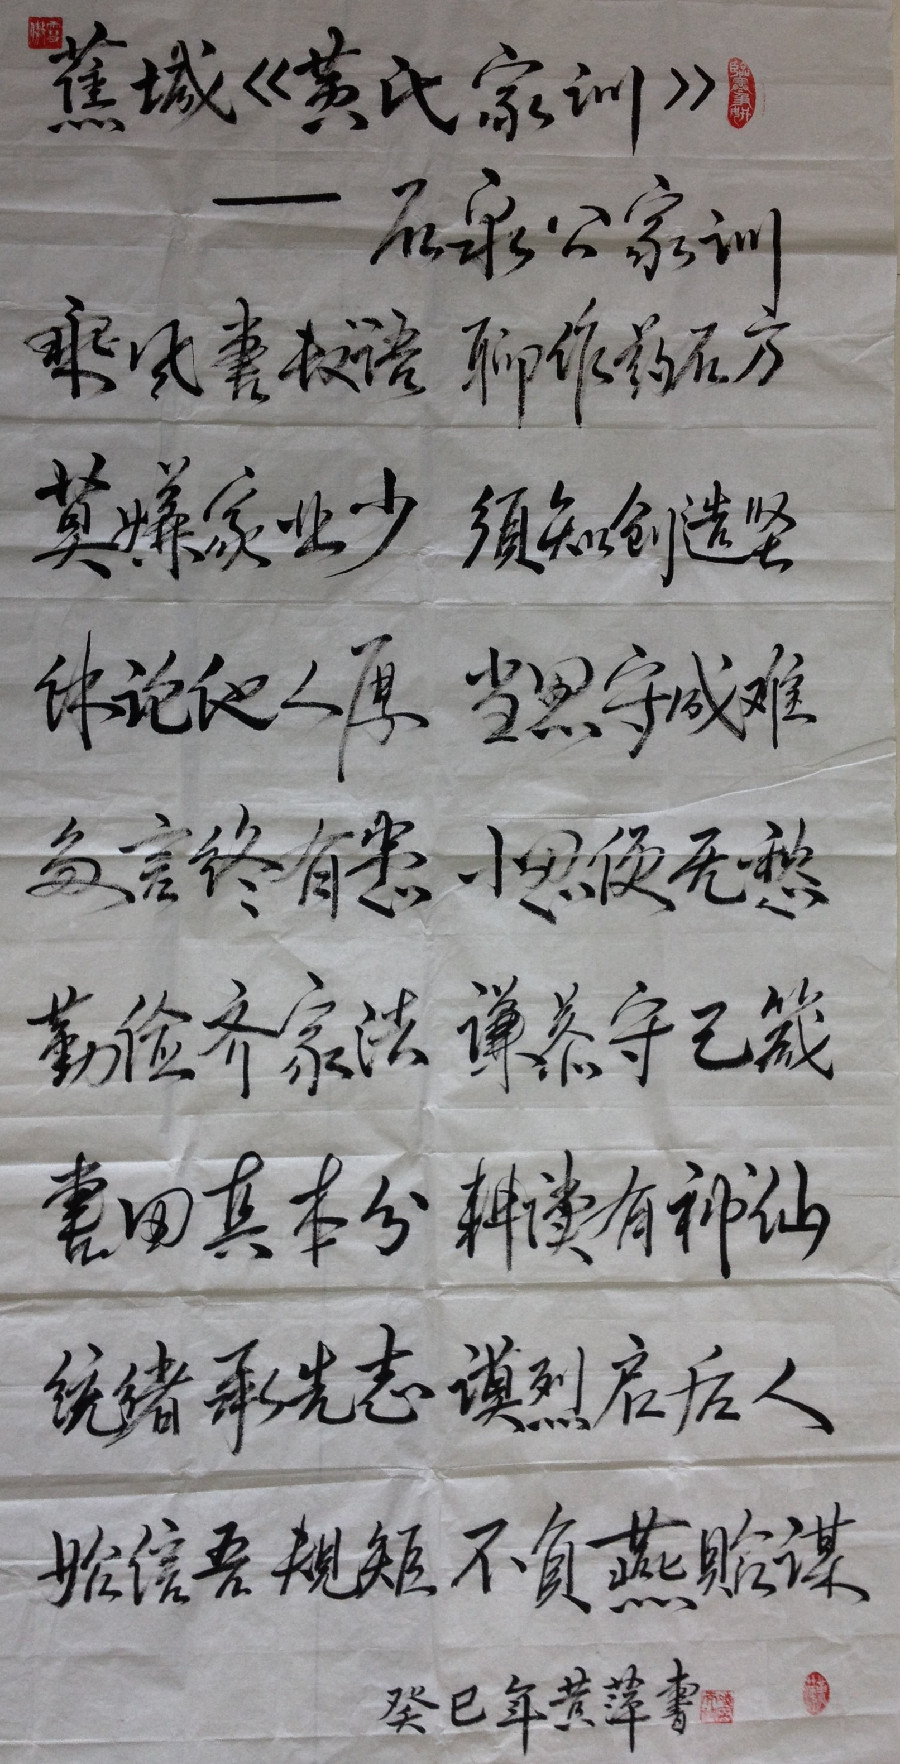 蕉城《黄氏家训》
—— 石泉公家训
乘风書校语 聊作药石方
莫嫌家业少 须知创造坚
休论他人厚 当思守成难
多言终有患 小忍便无愁
勤俭齐家法 谦恭守己箴
書田真本分 耕读有神仙
统绪承先志 谟烈启后人
始信吾规矩 不负燕贻谋
癸巳年黄萍書